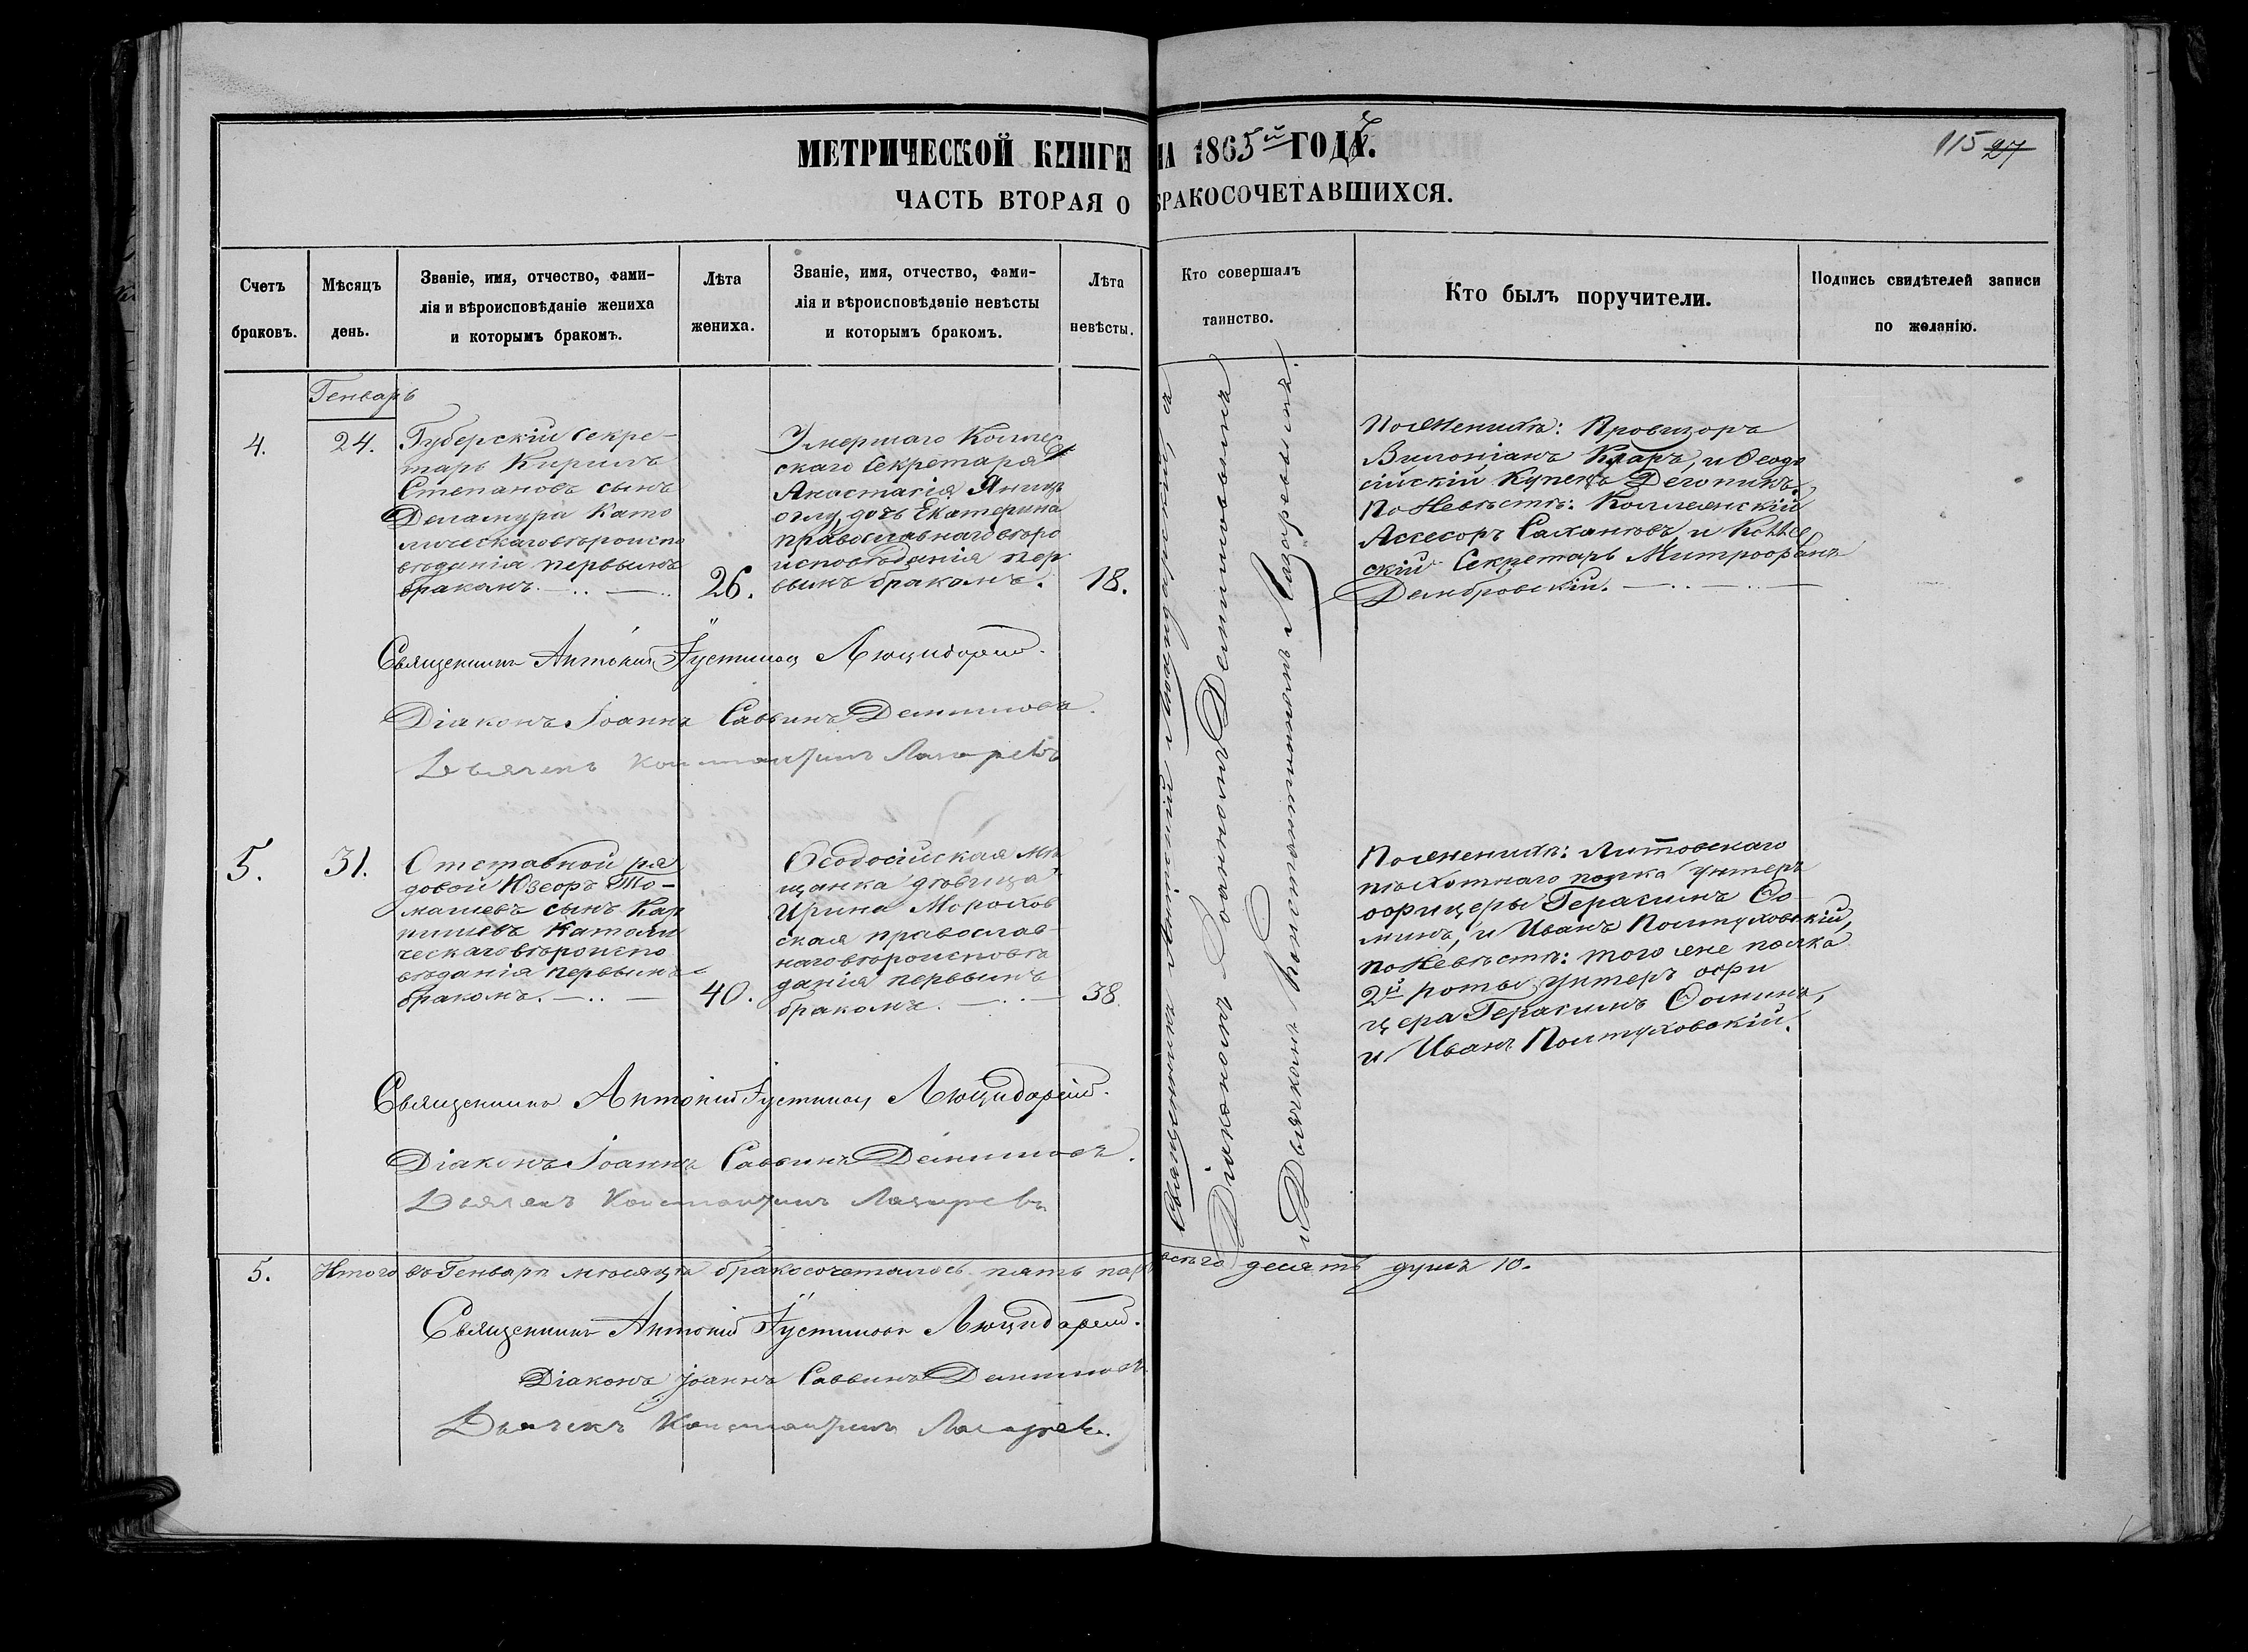 МЕТРИЧЕСКОЙ КНИГИ НА 1865й ГОДЪ.
115 27
ЧАСТЬ ВТОРАЯ О БРАКОСОЧЕТАВШИХСЯ.
Счетъ браковъ.
Мѣсяцъ день.
Званіе, имя, отчество, фами-
лія и вѣроисповѣданіе жениха
и которымъ бракомъ.
Лѣта
жениха.
Званіе, имя, отчество, фами-
лія и вѣроисповѣданіе невѣсты
и которымъ бракомъ.
Лѣта
невѣсты.
Кто совершалъ
таинство.
Кто былъ поручители.
Подпись свидѣтелей записи
по желанію.
Генварь
4.
24.
Губерскій Секре-
тарь Кирилъ
Степановъ сынъ
Деламура Като
лическаго вѣроиспо
вѣданія первымъ
бракомъ.
26.
Умершаго Колле
скаго Секретаря
Анастасія
оглу, дочь Екатерина
православнаго вѣро
исповѣданія пер
вымъ бракомъ.
18.
Священникъ Антоній Люцидарскій съ
Діакономъ Іоанномъ Демишовымъ
и Дьячкомъ Константиномъ Лазаревымъ.
По Женихѣ: Провизоръ
Кларъ, и Ѳеодо
сійскій Купецъ
По Невѣстѣ: Коллежскій
Ассесоръ Сахановъ, и Колле
скій Секретарь Митрофанъ
Домбровскій.
Священникъ Антоній Іустиновъ Люцидарскій.
Діаконъ Іоаннъ Саввинъ Демишовъ.
Дьячекъ Константинъ Лазаревъ
5.
31.
Отставной ря
довой Юзефъ То-
машевъ сынъ Кар
Католи
ческаго вѣроиспо
вѣданія первымъ
бракомъ.
40.
Ѳеодосійская мѣ
щанка дѣвица
Ирина Морохов
ская православ-
наго вѣроисповѣ
данія первымъ
бракомъ.
38.
По женихѣ: Литовскаго
пѣхотнаго полка унтеръ
офицеры Герасимъ Ѳо-
минъ, и Иванъ Полтуховскій,
по Невѣстѣ: того же полка
2й роты унтеръ офи
цера Герасимъ Ѳоминъ,
и Иванъ Полтуховскій.
Священникъ Антоній Іустиновъ Люцидарскій.
Діаконъ Іоаннъ Саввинъ Демишовъ.
Дьячекъ Константинъ Лазаревъ
5. Итого въ Генварѣ мѣсяцѣ бракосочеталось пять паръ всего десять душъ 10.
Священникъ Антоній Іустиновъ Люцидарскій.
Діаконъ Іоаннъ Саввинъ Демишовъ.
Дьячекъ Константинъ Лазаревъ.